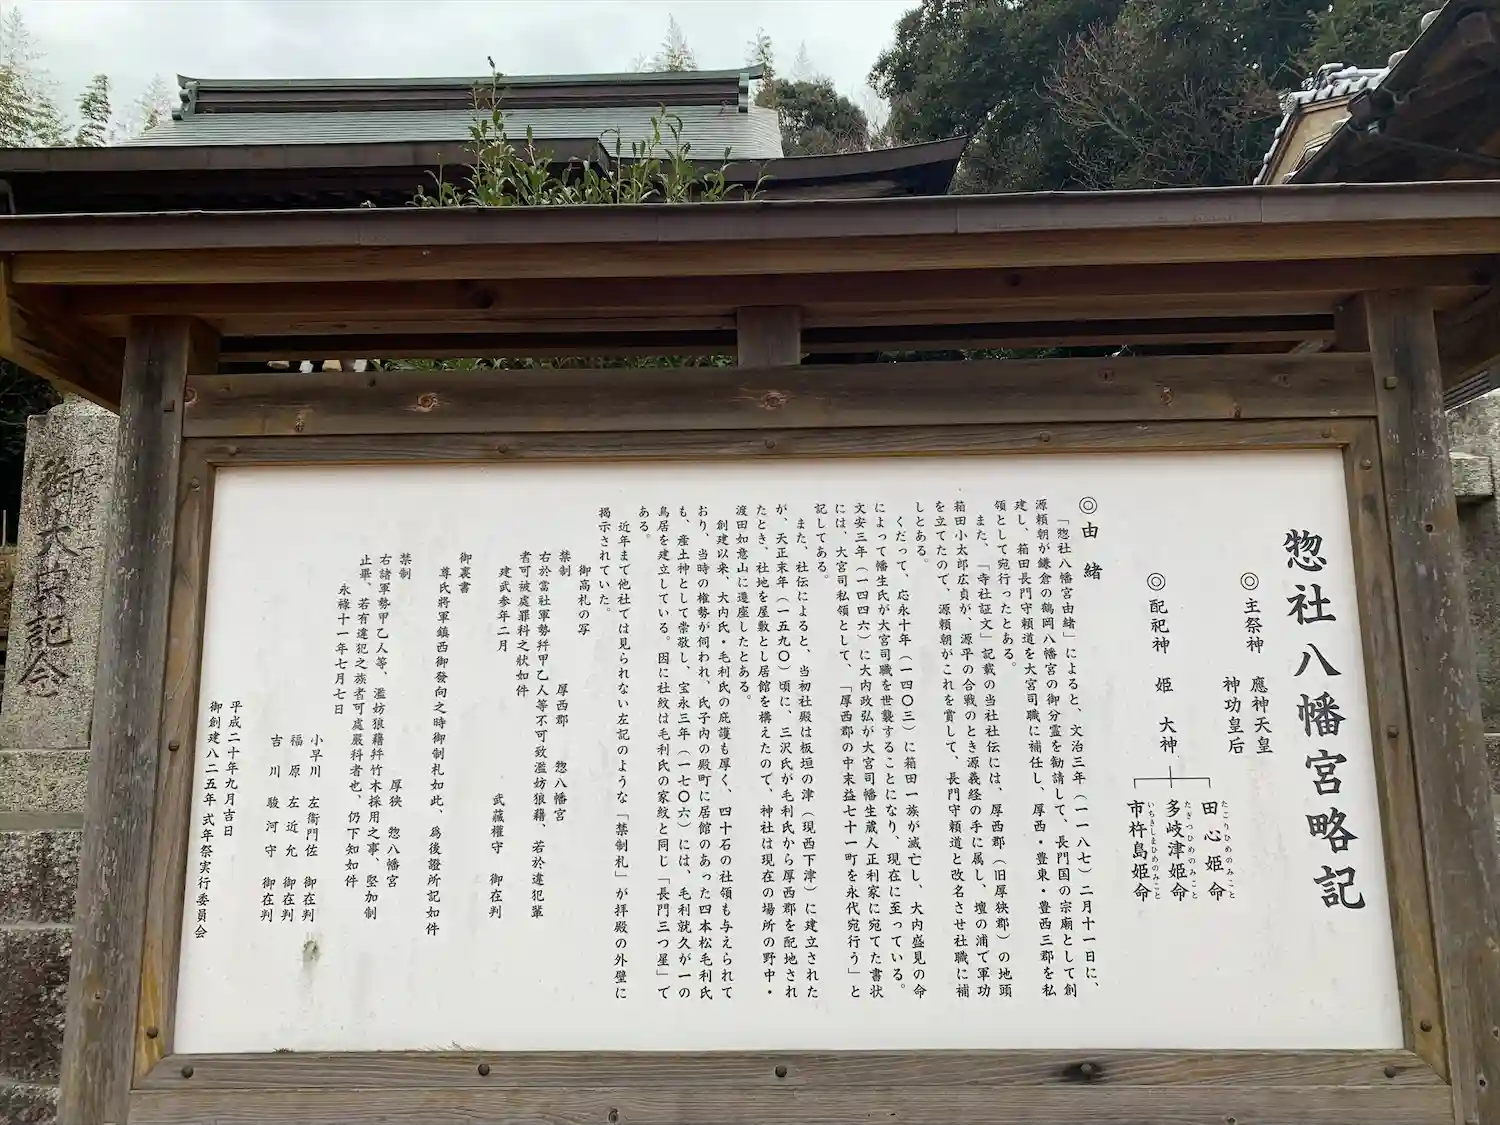 惣社八幡宮略記
◎主祭神　應神天皇
神功皇后
◎配祀神　姫　大神
田心姫命
たこりひめのみこと
多岐津姫命
たぎつひめのみこと
市杵島姫命
いちきしまひめのみこと
◎由　緒
「惣社八幡宮由緒」によると、文治三年（一一八七）二月十一日に、
源頼朝が鎌倉の鶴岡八幡宮の御分霊を勧請して、長門国の宗廟として創
建し、箱田長門守頼道を大宮司職に補任し、厚西・豊東・豊西三郡を私
領として宛行ったとある。
また、「寺社証文」記載の当社社伝には、厚西郡（旧厚狭郡）の地頭
箱田小太郎広貞が、源平の合戦のとき源義経の手に属し、壇の浦で軍功
を立てたので、源頼朝がこれを賞して、長門守頼道と改名させ社職に補
しとある。
くだって、応永十年（一四〇三）に箱田一族が滅亡し、大内盛見の命
によって幡生氏が大宮司職を世襲することになり、現在に至っている。
文安三年（一四四六）に大内政弘が大宮司幡生蔵人正利家に宛てた書状
には、大宮司私領として、「厚西郡の中末益七十一町を永代宛行う」と
記してある。
また、社伝によると、当初社殿は板垣の津（現西下津）に建立された
が、天正末年（一五九〇）頃に、三沢氏が毛利氏から厚西郡を配地され
たとき、社地を屋敷とし居館を構えたので、神社は現在の場所の野中・
渡田如意山に遷座したとある。
創建以来、大内氏・毛利氏の庇護も厚く、四十石の社領も与えられて
おり、当時の権勢が伺われ、氏子内の殿町に居館のあった四本松毛利氏
も、産土神として崇敬し、宝永三年（一七〇六）には、毛利就久が一の
鳥居を建立している。因に社紋は毛利氏の家紋と同じ「長門三つ星」で
ある。
近年まで他社では見られない左記のような「禁制札」が拝殿の外壁に
掲示されていた。
御高札の写
禁制　厚西郡　惣八幡宮
右於當社軍勢幷甲乙人等不可致濫妨狼藉、若於違犯輩
者可被處罪科之狀如件
建武参年二月　武藏權守　御在判
御裏書
尊氏將軍鎮西御發向之時御制札如此、爲後證所記如件
禁制　厚狹　惣八幡宮
右諸軍勢甲乙人等、濫妨狼藉幷竹木採用之事、堅加制
止畢、若有違犯之族者可處嚴科者也、仍下知如件
永祿十一年七月七日
小早川　左衞門佐　御在判
福　原　左近允　御在判
吉　川　駿河守　御在判
平成二十年九月吉日
御創建八二五年式年祭実行委員会
御大典記念